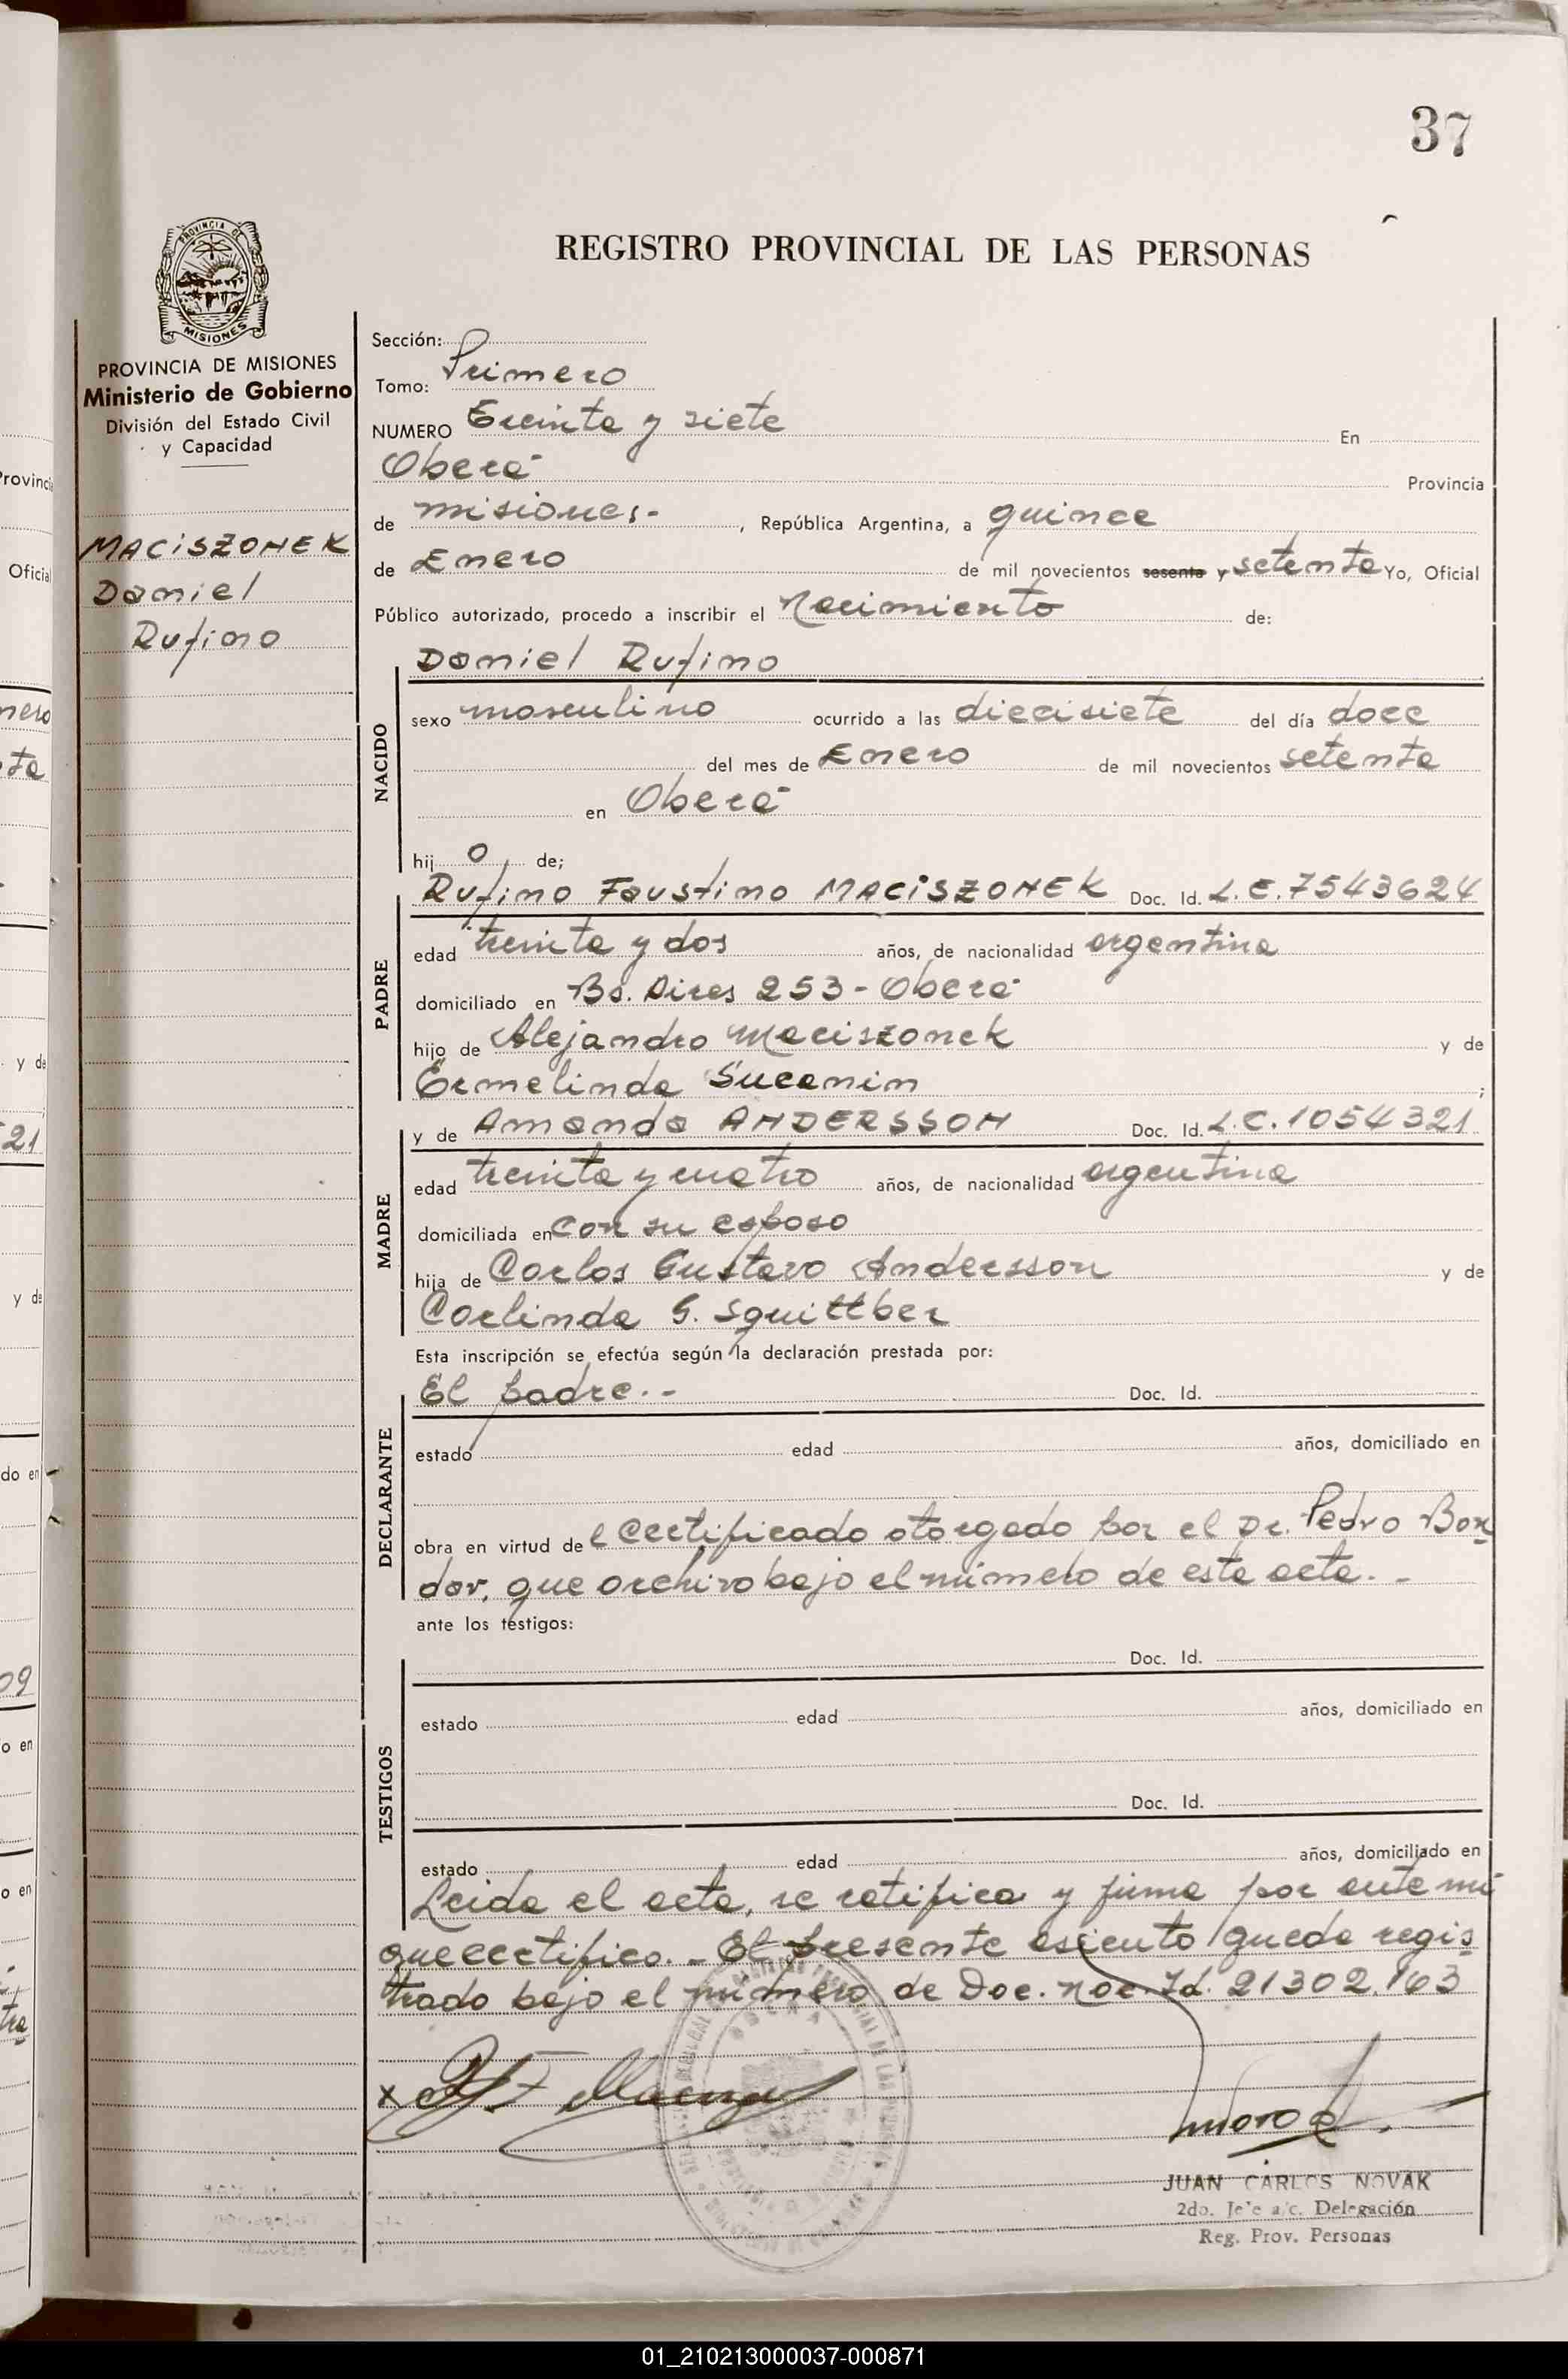 37
REGISTRO PROVINCIAL DE LAS PERSONAS
PROVINCIA DE MISIONES
Ministerio de Gobierno
División del Estado Civil
y Capacidad
MACISZONEK
Daniel
Rufino
Sección:
Tomo: Primero
NUMERO Treinta y siete En
Oberá Provincia
de misiones.- , República Argentina, a quince
de Enero de mil novecientos sesenta y setenta Yo, Oficial
Público autorizado, procedo a inscribir el Nacimiento de:
Daniel Rufino
NACIDO
sexo masculino ocurrido a las diecisiete del día doce
del mes de Enero de mil novecientos setenta
en Oberá
hij o de;
Rufino Faustino MACISZONEK Doc. Id. L.E.7543624
PADRE
edad treinta y dos años, de nacionalidad argentina
domiciliado en Bs. Aires 253 - Oberá
hijo de Alejandro Maciszonek y de
Ermelinda Sucanin ;
y de Amanda ANDERSSON Doc. Id. L.C.1054321
MADRE
edad treinta y cuatro años, de nacionalidad argentina
domiciliada en con su esposo
hija de Carlos Gustavo Andersson y de
Carlinda G. Squittber
Esta inscripción se efectúa según la declaración prestada por:
El padre.- Doc. Id.
DECLARANTE
estado edad años, domiciliado en
obra en virtud de l Certificado otorgado por el Dr. Pedro Bon
dar, que archivo bajo el número de esta acta. -
ante los testigos:
Doc. Id.
TESTIGOS
estado edad años, domiciliado en
Doc. Id.
estado edad años, domiciliado en
Leida el acta, se ratifica y firma por ante mi
que certifico. - El presente asiento queda regis
trado bajo el número de Doc. Nac. Id. 21302.163
JUAN CARLOS NOVAK
2do. Jefe a/c. Delegación
Reg. Prov. Personas
01_210213000037-000871